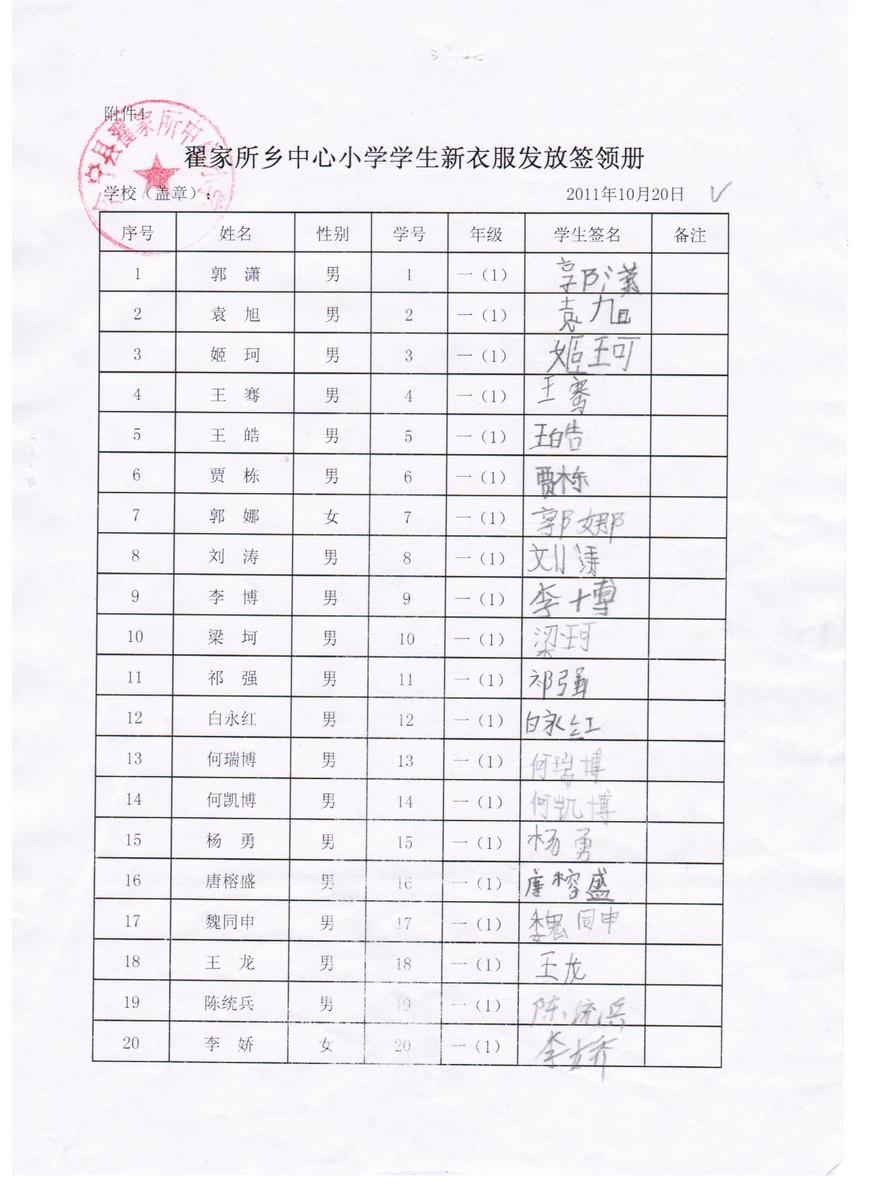 附件4
翟家所乡中心小学学生新衣服发放签领册
学校（盖章）： 2011年10月20日 √
序号 姓名 性别 学号 年级 学生签名 备注
1 郭 潇 男 1 一（1） 郭潇
2 袁 旭 男 2 一（1） 袁旭
3 姬 珂 男 3 一（1） 姬珂
4 王 骞 男 4 一（1） 王骞
5 王 皓 男 5 一（1） 王皓
6 贾 栋 男 6 一（1） 贾栋
7 郭 娜 女 7 一（1） 郭娜
8 刘 涛 男 8 一（1） 刘涛
9 李 博 男 9 一（1） 李博
10 梁 坷 男 10 一（1） 梁珂
11 祁 强 男 11 一（1） 祁强
12 白永红 男 12 一（1） 白永红
13 何瑞博 男 13 一（1） 何瑞博
14 何凯博 男 14 一（1） 何凯博
15 杨 勇 男 15 一（1） 杨勇
16 唐榕盛 男 16 一（1） 唐榕盛
17 魏同申 男 17 一（1） 魏同申
18 王 龙 男 18 一（1） 王龙
19 陈统兵 男 19 一（1） 陈统兵
20 李 娇 女 20 一（1） 李娇